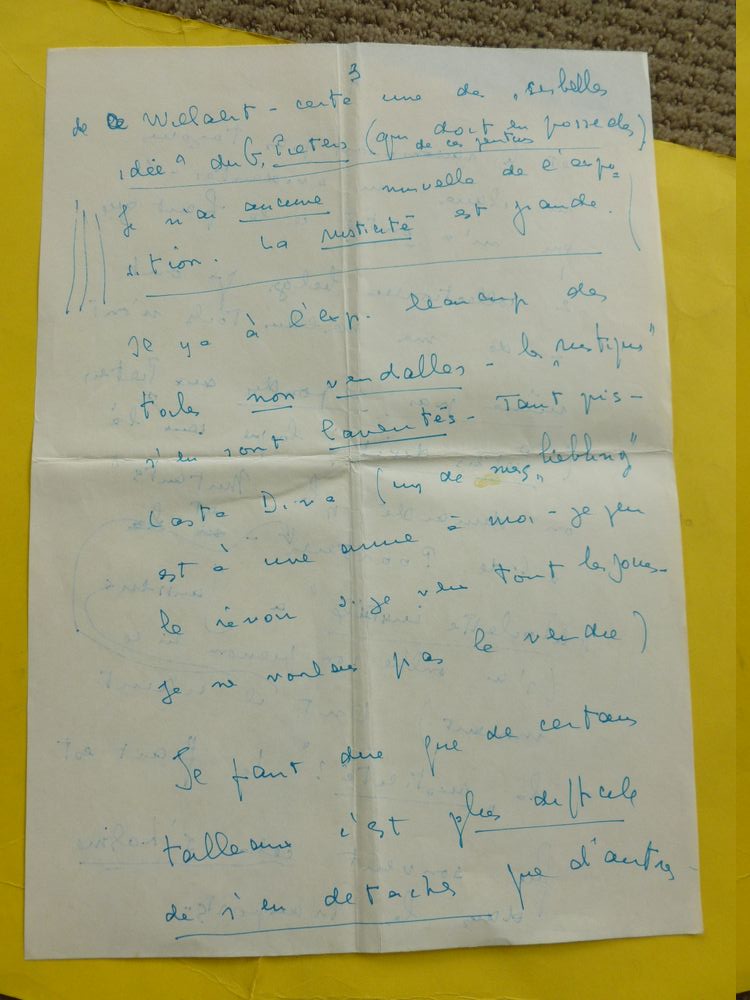 3
de ce Willaert - certe une de ses belles
idée" du G. Pieters (qui doit en posseder)
de ca
Je n'ai aucune nouvelle de l'expo=
sition. La rusticité est grande.
Je y a à l'exp. beaucoup des
toiles non vendables - les „rustiques"
s'en sont - Tant pis -
Casta Diva (un de mes „liebling"
est à une amie à moi - je peu
le revoir si je veu tout les jours -
Je ne voulais pas le vendre)
Je faut dire que de certains
tableaux c'est plus difficile
de s'en detacher que d'autres -